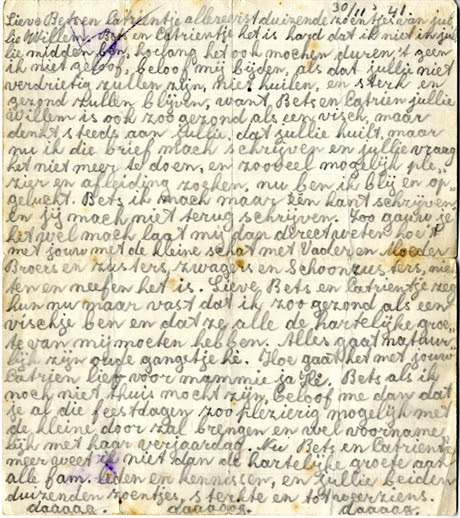 30/11 '41
Lieve Bets en Catrientje allereerst duizende zoentjes van jul
lie Willem. Bets en Catrientje het is hard dat ik niet in jul
lie midden ben, hoelang het ook mochen duren 't geen
ik niet geloof, beloof mij bijden, als dat jullie niet
verdrietig zullen zijn, niet huilen, en sterk en
gezond zullen blijven, want, Bets en Catrien jullie
Willem is ook zoo gezond als een visch, maar
denkt steeds aan Jullie, dat jullie huilt, maar
nu ik die brief mach schrijven en jullie vraag
het niet meer te doen, en zooveel mogelijk ple„
zier en afleiding zoeken, nu ben ik blij en op„
gelucht. Bets ik mach maar één kant schrijven,
en jij mach niet terug schrijven. Zoo gauw je
het wel moch laat mij dan direct weten hoe't
met jouw met de kleine schat met Vader en Moeder
Broers en zusters, zwagers en Schoonzusters, nich
ten en neefen het is. Lieve Bets en Catrientje zeg
hun nu maar vast dat ik zoo gezond als een
vischje ben en dat ze alle de hartelijke groe„
te van mij moeten hebben. Alles gaat natuur„
lijk zijn oude gangetje hé. Hoe gaat het met jouw
Catrien lief voor mammie ja Hé. Bets als ik
noch niet thuis mocht zijn, beloof me dan dat
je al die feestdagen zoo plezierig mogelijk met
de kleine door zal brengen en wel voorname„
lijk met haar verjaardag. Nu Bets en Catrientje
meer weet ik niet dan de hartelijke groete aan
alle fam. leden en kennissen, en Jullie beiden
duizenden zoentjes, sterkte en tot wederziens.
daaaag. daaaaag. daaaag.